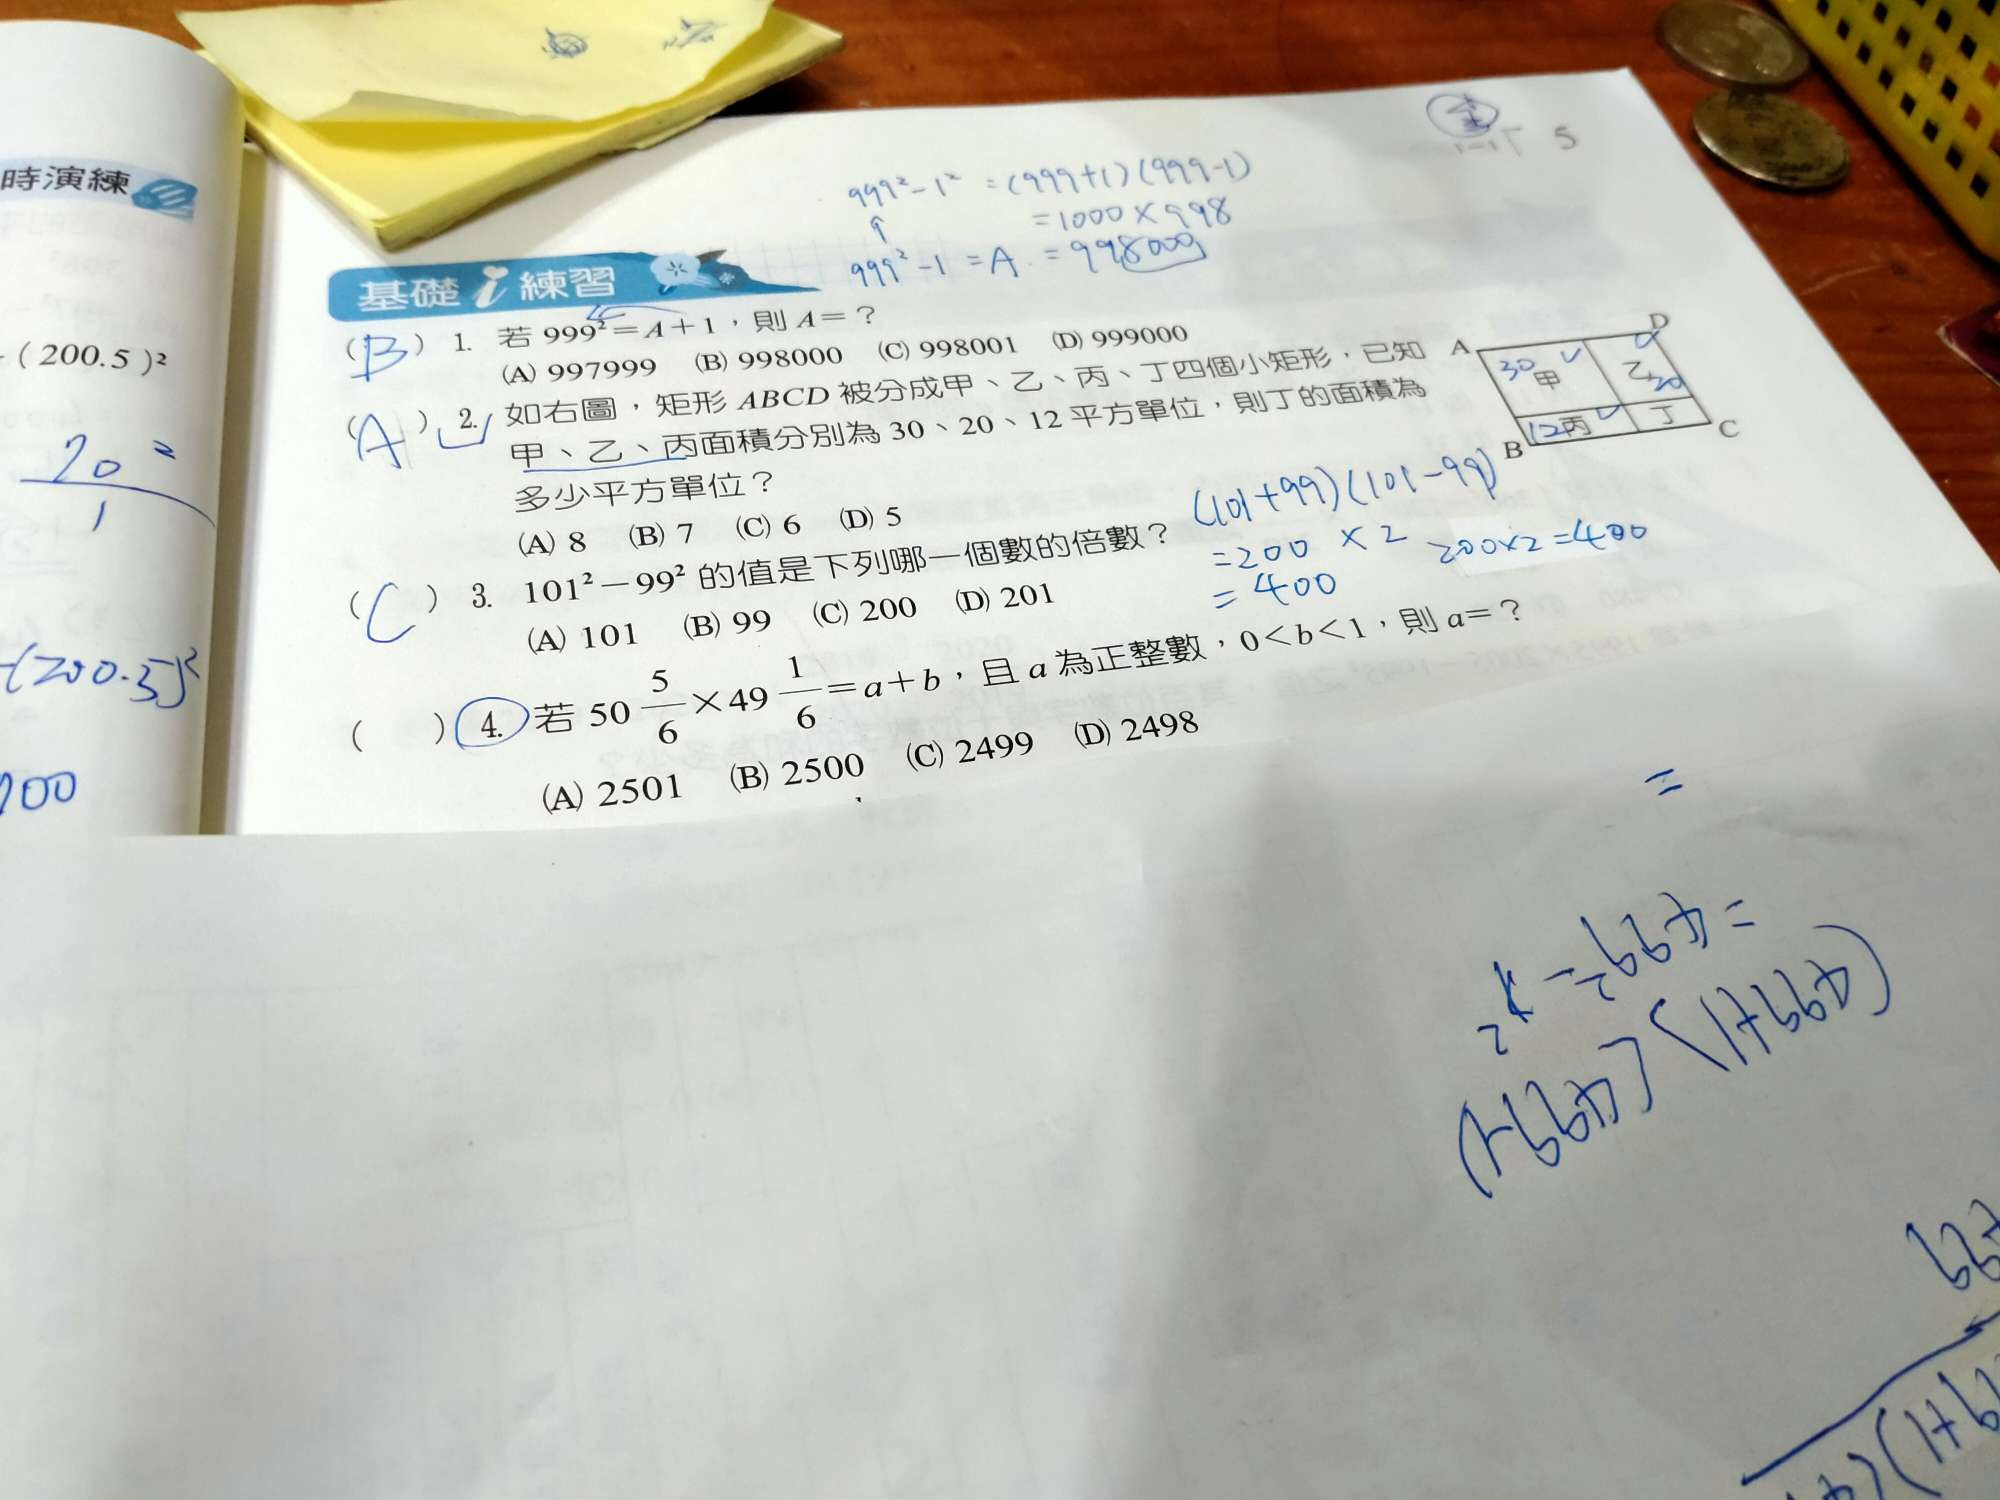 時演練
(200.5)²
20²
1
-(200.5)²
=
700
5
999²-1²=(999+1)(999-1)
=1000×998
999²-1=A=998000
基礎 i 練習
(B) 1. 若 999²=A+1,則 A=?
(A) 997999 (B) 998000 (C) 998001 (D) 999000
(A) 2. 如右圖,矩形 ABCD 被分成甲、乙、丙、丁四個小矩形,已知
甲、乙、丙面積分別為 30、20、12 平方單位,則丁的面積為
多少平方單位?
(A) 8 (B) 7 (C) 6 (D) 5
A D
30 甲 乙
12 丙 丁
B C
(101+99)(101-99)
=200×2 200×2=400
=400
(C) 3. 101²-99² 的值是下列哪一個數的倍數?
(A) 101 (B) 99 (C) 200 (D) 201
( ) 4. 若 50 5/6 × 49 1/6 = a+b,且 a 為正整數,0<b<1,則 a=?
(A) 2501 (B) 2500 (C) 2499 (D) 2498
=
(499+1)